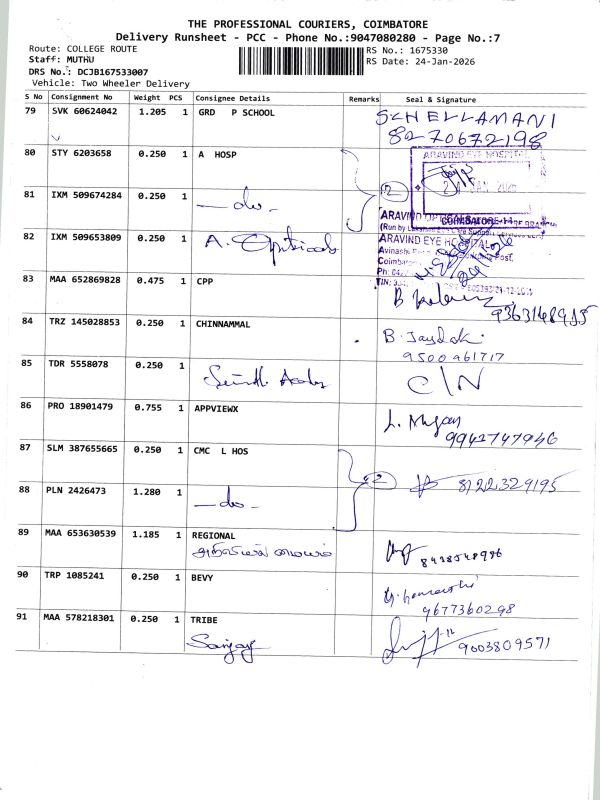 THE PROFESSIONAL COURIERS, COIMBATORE
Delivery Runsheet - PCC - Phone No.:9047080280 - Page No.:7
Route: COLLEGE ROUTE
RS No.: 1675330
Staff: MUTHU
RS Date: 24-Jan-2026
DRS No.: DCJB167533007
Vehicle: Two Wheeler Delivery
S No Consignment No Weight PCS Consignee Details Remarks Seal & Signature
79 SVK 60624042 1.205 1 GRD P SCHOOL
8270672198
80 STY 6203658 0.250 1 A HOSP
ARAVIND EYE HOSPITAL
81 IXM 509674284 0.250 1 -do-
12
COIMBATORE-14
82 IXM 509653809 0.250 1 A. Opticals
ARAVIND EYE HOSPITAL
83 MAA 652869828 0.475 1 CPP
84 TRZ 145028853 0.250 1 CHINNAMMAL
9500961717
85 TDR 5558078 0.250 1
C\N
86 PRO 18901479 0.755 1 APPVIEWX
9942747946
87 SLM 387655665 0.250 1 CMC L HOS
2 8122329195
88 PLN 2426473 1.280 1 -do-
89 MAA 653630539 1.185 1 REGIONAL
அறிவியல் மையம்
90 TRP 1085241 0.250 1 BEVY
9677360298
91 MAA 578218301 0.250 1 TRIBE
Sanjay
9003809571